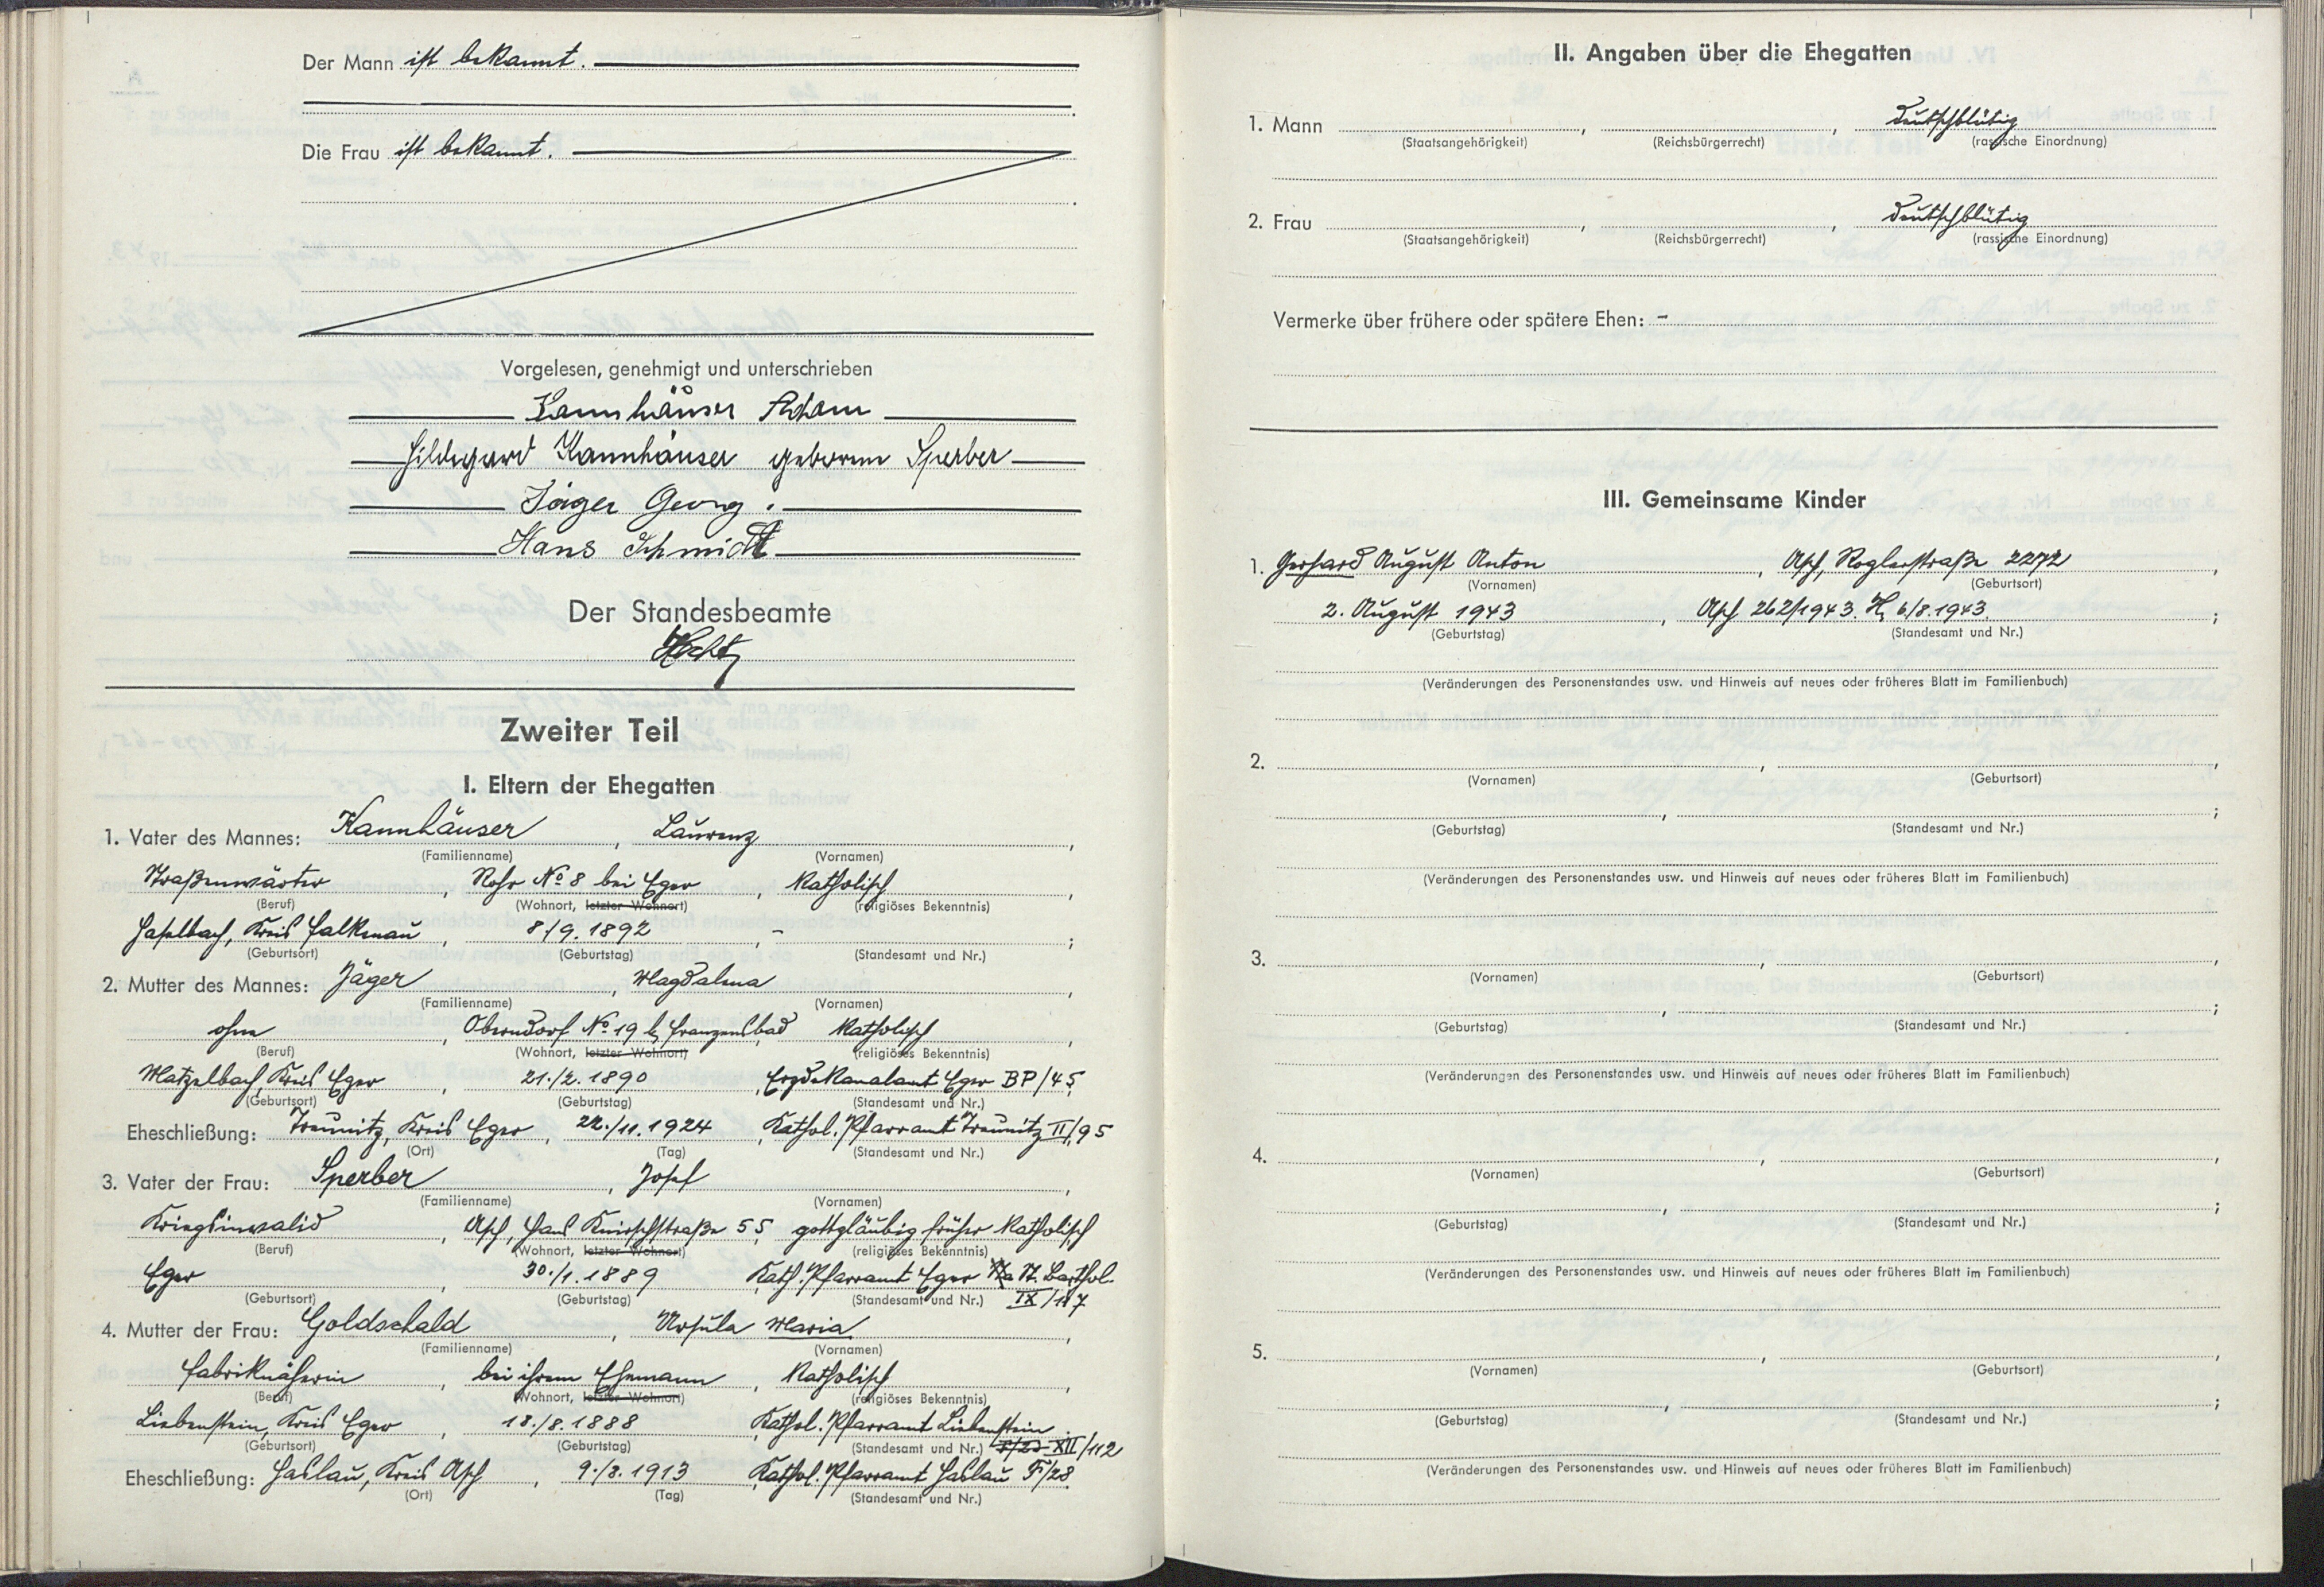 Der Mann ist bekannt.
Die Frau ist bekannt.
Vorgelesen, genehmigt und unterschrieben
Kannhäuser Adam
Hildegard Kannhäuser geborene Sperber
Jäger Georg.
Hans Schmidt
Der Standesbeamte
Zweiter Teil
I. Eltern der Ehegatten
1. Vater des Mannes: Kannhäuser, Laurenz,
(Familienname) (Vornamen)
Straßenwärter, Rohr No 8 bei Eger, katholisch,
(Beruf) (Wohnort, letzter Wohnort) (religiöses Bekenntnis)
Haselbach, Kreis Falkenau, 8./9. 1892, - ;
(Geburtsort) (Geburtstag) (Standesamt und Nr.)
2. Mutter des Mannes: Jäger, Magdalena,
(Familienname) (Vornamen)
ohne, Oberndorf No 19 b. Franzensbad, katholisch,
(Beruf) (Wohnort, letzter Wohnort) (religiöses Bekenntnis)
Matzelbach, Kreis Eger, 21./2. 1890, Erzdekanalamt Eger BP/45;
(Geburtsort) (Geburtstag) (Standesamt und Nr.)
Eheschließung: Treunitz, Kreis Eger, 22./11. 1924, Kathol. Pfarramt Treunitz II/95
(Ort) (Tag) (Standesamt und Nr.)
3. Vater der Frau: Sperber, Josef,
(Familienname) (Vornamen)
Kriegsinvalid, Asch, Hans Knirschstraße 55, gottgläubig früher katholisch
(Beruf) (Wohnort, letzter Wohnort) (religiöses Bekenntnis)
Eger, 30./1. 1889, Kath. Pfarramt Eger St. Barthol.
(Geburtsort) (Geburtstag) (Standesamt und Nr.) IX/187
4. Mutter der Frau: Goldschald, Ursula Maria,
(Familienname) (Vornamen)
Fabriknäherin, bei ihrem Ehemann, katholisch,
(Beruf) (Wohnort, letzter Wohnort) (religiöses Bekenntnis)
Liebenstein, Kreis Eger, 18./8. 1888, Kathol. Pfarramt Liebenstein
(Geburtsort) (Geburtstag) (Standesamt und Nr.) XII/112
Eheschließung: Haslau, Kreis Asch, 9./8. 1913, Kathol. Pfarramt Haslau F/28
(Ort) (Tag) (Standesamt und Nr.)
II. Angaben über die Ehegatten
1. Mann , , deutschblütig
(Staatsangehörigkeit) (Reichsbürgerrecht) (rassische Einordnung)
2. Frau , , deutschblütig
(Staatsangehörigkeit) (Reichsbürgerrecht) (rassische Einordnung)
Vermerke über frühere oder spätere Ehen: -
III. Gemeinsame Kinder
1. Gerhard August Anton, Asch, Roglerstraße 2272,
(Vornamen) (Geburtsort)
2. August 1943, Asch 262/1943. H, 6/8. 1943. ;
(Geburtstag) (Standesamt und Nr.)
(Veränderungen des Personenstandes usw. und Hinweis auf neues oder früheres Blatt im Familienbuch)
2. , ,
(Vornamen) (Geburtsort)
, ;
(Geburtstag) (Standesamt und Nr.)
(Veränderungen des Personenstandes usw. und Hinweis auf neues oder früheres Blatt im Familienbuch)
3. , ,
(Vornamen) (Geburtsort)
, ;
(Geburtstag) (Standesamt und Nr.)
(Veränderungen des Personenstandes usw. und Hinweis auf neues oder früheres Blatt im Familienbuch)
4. , ,
(Vornamen) (Geburtsort)
, ;
(Geburtstag) (Standesamt und Nr.)
(Veränderungen des Personenstandes usw. und Hinweis auf neues oder früheres Blatt im Familienbuch)
5. , ,
(Vornamen) (Geburtsort)
, ;
(Geburtstag) (Standesamt und Nr.)
(Veränderungen des Personenstandes usw. und Hinweis auf neues oder früheres Blatt im Familienbuch)